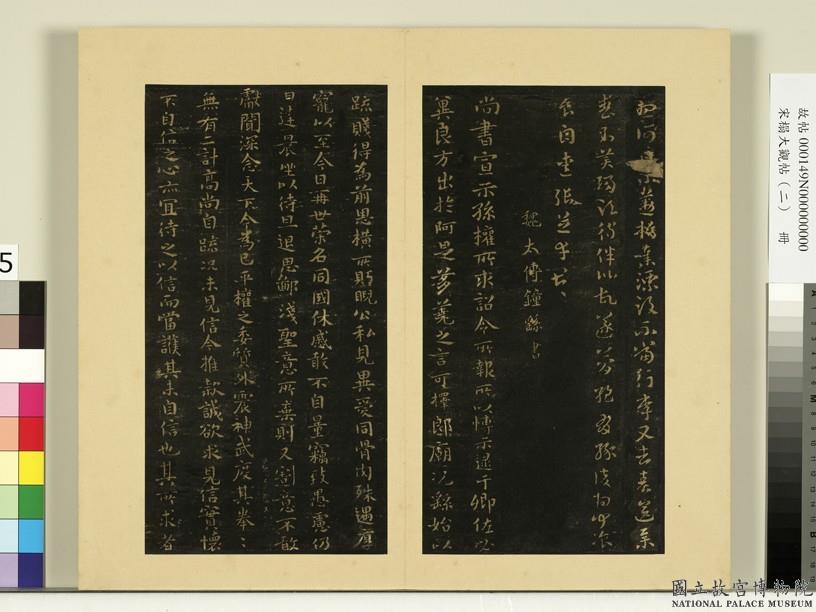 想何日不懃捐棄漂沒不當行李又去春送舉
喪到美陽須待伴比故遂簡絕有緣復相聞飡
食自愛張芝幸甚〻
魏太傅鍾繇書
尚書宣示孫權所求詔令所報所以博示逮于卿佐必
冀良方出於阿是芻蕘之言可擇郎廟況繇始以
疏賤得為前恩橫所盻睨公私見異愛同骨肉殊遇厚
寵以至今日再世榮名同國休慼敢不自量竊致愚慮仍
日達晨坐以待旦退思鄙淺聖意所棄則又割意不敢
獻聞深念天下今為已平權之委質外震神武度其拳〻
無有二計高尚自疏況未見信今推款誠欲求見信實懷
不自信之心亦宜待之以信而當護其未自信也其所求者
故帖 000149N000000000
宋榻大觀帖(二) 冊
5
國立故宮博物院
NATIONAL PALACE MUSEUM